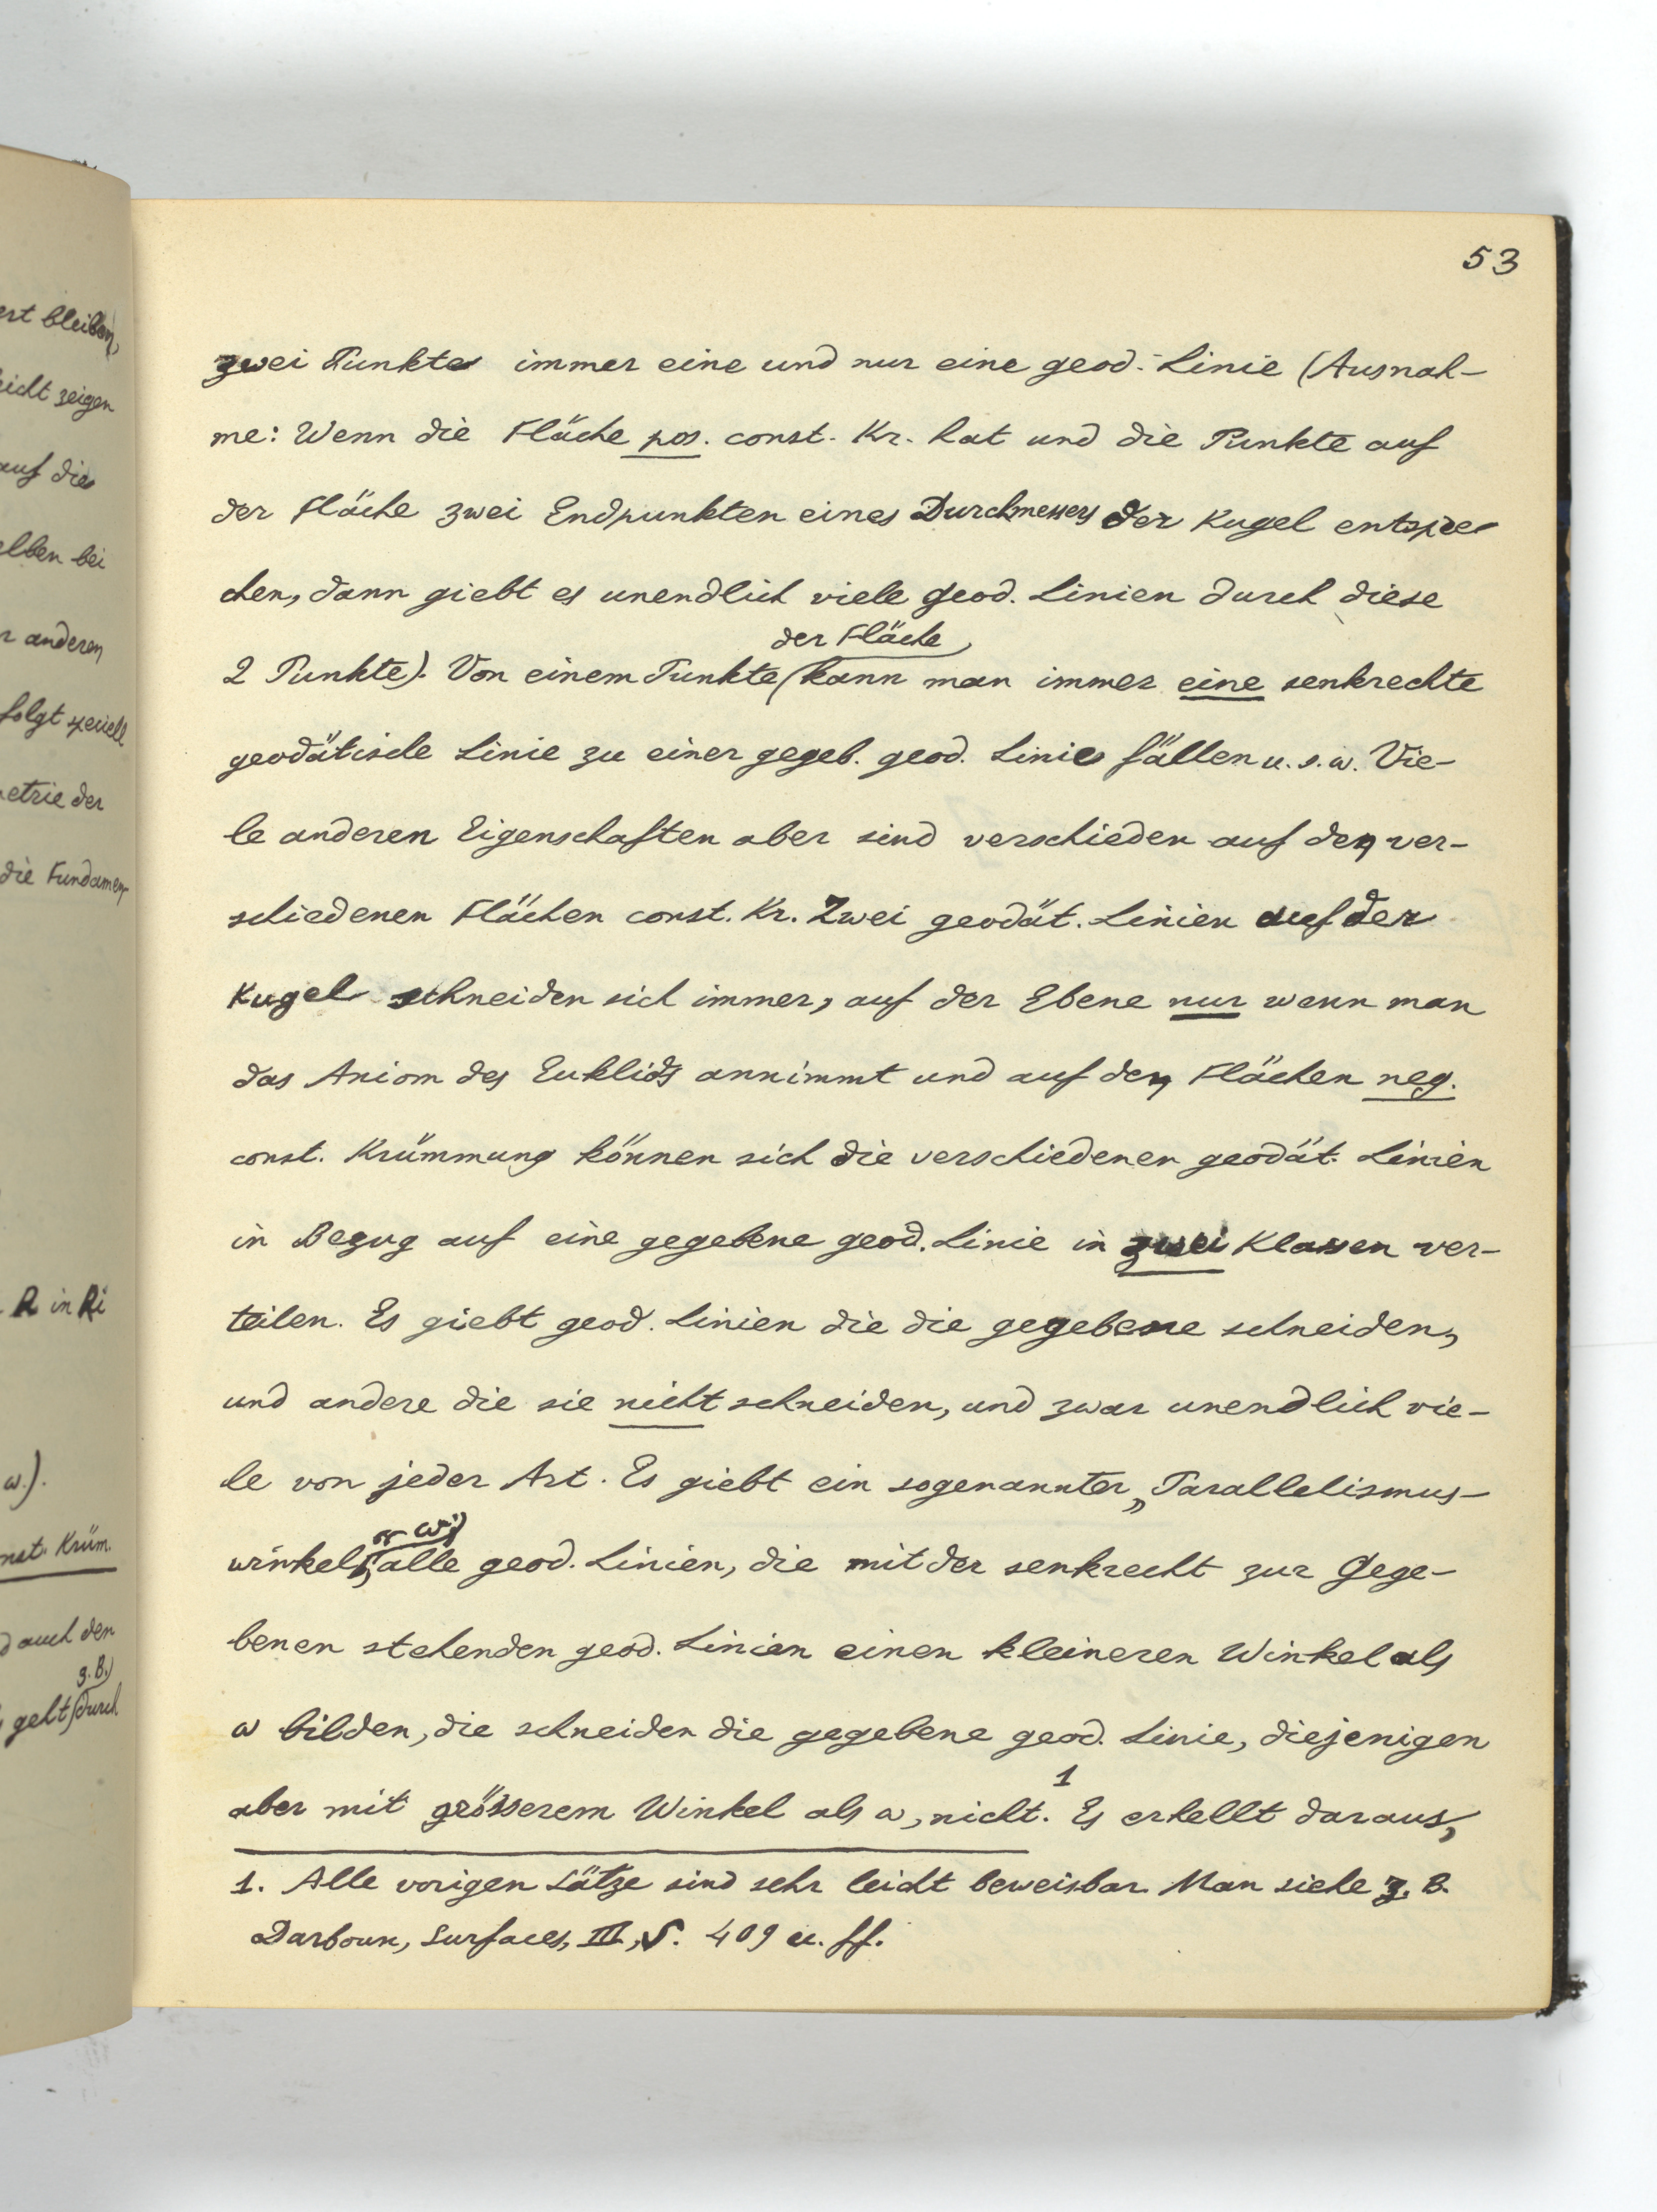 53
zwei Punkte immer eine und nur eine geod. Linie (Ausnah-
me: Wenn die Fläche pos. const. Kr. hat und die Punkte auf
der Fläche zwei Endpunkten eines Durchmessers der Kugel entspre
chen, dann giebt es unendlich viele geod. Linien durch diese
der Fläche
2 Punkte). Von einem Punkte kann man immer eine senkrechte
geodätische Linie zu einer gegeb. geod. Linie fällen u. s. w. Vie-
le anderen Eigenschaften aber sind verschieden auf den ver-
schiedenen Flächen const. Kr. Zwei geodät. Linien auf der
Kugel schneiden sich immer, auf der Ebene nur wenn man
das Axiom des Euklids annimmt und auf den Flächen neg.
const. Krümmung können sich die verschiedenen geodät. Linien
in Bezug auf eine gegebene geod. Linie in zwei Klassen ver-
teilen. Es giebt geod. Linien die die gegebene schneiden,
und andere die sie nicht schneiden, und zwar unendlich vie-
le von jeder Art. Es giebt ein sogenannter „Parallelismus-
winkel alle geod. Linien, die mit der senkrecht zur Gege-
benen stehenden geod. Linien einen kleineren Winkel als
ω bilden, die schneiden die gegebene geod. Linie, diejenigen
aber mit grösserem Winkel als ω, nicht.1 Es erhellt daraus,
1. Alle vorigen Sätze sind sehr leicht beweisbar. Man siehe z. B.
Darboux, Surfaces, III, S. 409 u. ff.
est bleiben,
eicht zeigen
auf die
elben bei
r anderen
folgt speciell
etrie der
die Fundamen-
R in Ri
w.).
nst. Krüm.
d auch den
z.B.
geht durch